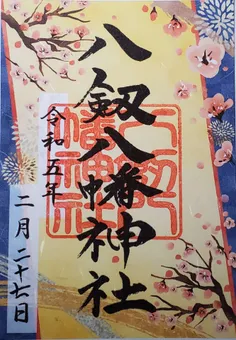 八剱八幡神社
八剱八幡神社
令和五年
二月二十七日